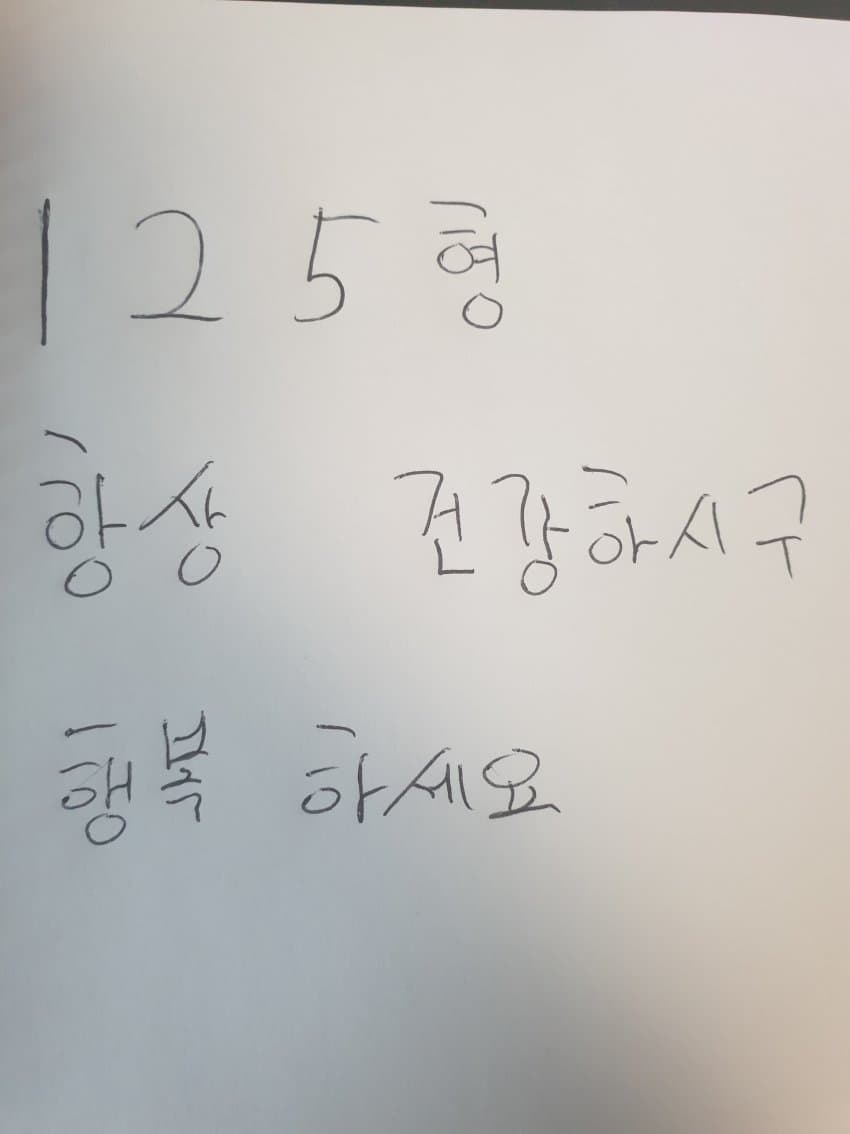 125형
항상 건강하시구
행복 하세요